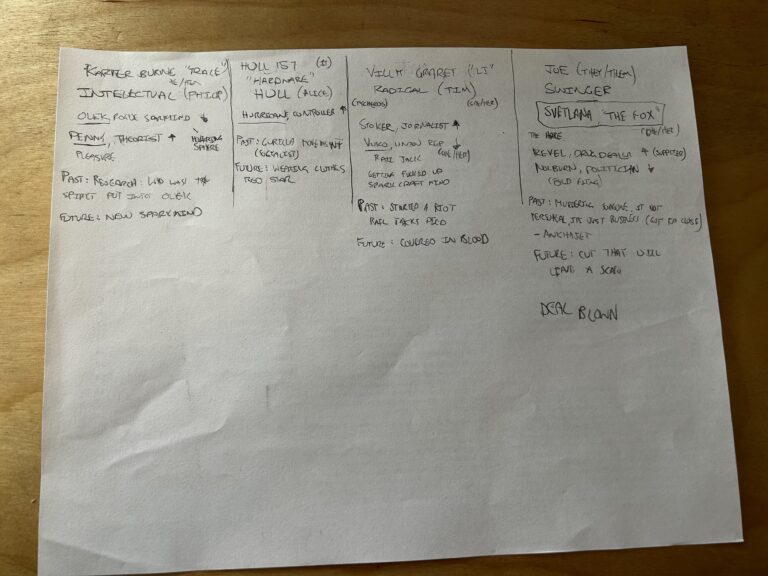 KARTER BURNE "TRACE"
HE/HIM
INTELECTUAL (PHILIP)
OLEK, POLICE SPARKMIND ↓
PENNY, THEORIST ↑
HOVERING SPHERE
PLEASURE
PAST: RESEARCH: WHO WAS THE
SPIRIT PUT INTO OLEK
FUTURE: NEW SPARKMIND
HULL 157 (IT)
"HARDWARE"
HULL (ALICE)
HURRICANE, CONTROLLER ↑
PAST: GURILLA MOVEMENT
(SOCIALIST)
FUTURE: WEARING CLOTHES
RED STAR
VILLM GARRET ("LI")
RADICAL (TIM)
(SHE/HER)
STOKER, JOURNALIST ↑
VUSCO, UNION REP ↓
(SHE/HER)
RAIL JACK
GETTING FUCKED UP
SPARK CRAFT MIND
PAST: STARTED A RIOT
RAIL JACKS
FUTURE: COVERED IN BLOOD
JOE (THEY/THEM)
SWINGER
SVETLANA "THE FOX"
(SHE/HER)
THE
REVEL, DRUG DEALER ↑ (SUPPLIER)
POLITICIAN ↓
PAST: MURDERING SOMEONE, IT NOT
PERSONAL, ITS JUST BUSINESS (GOT TOO CLOSE)
FUTURE: CUT THAT WILL
LEAVE A SCAR
DEAL BLOWN